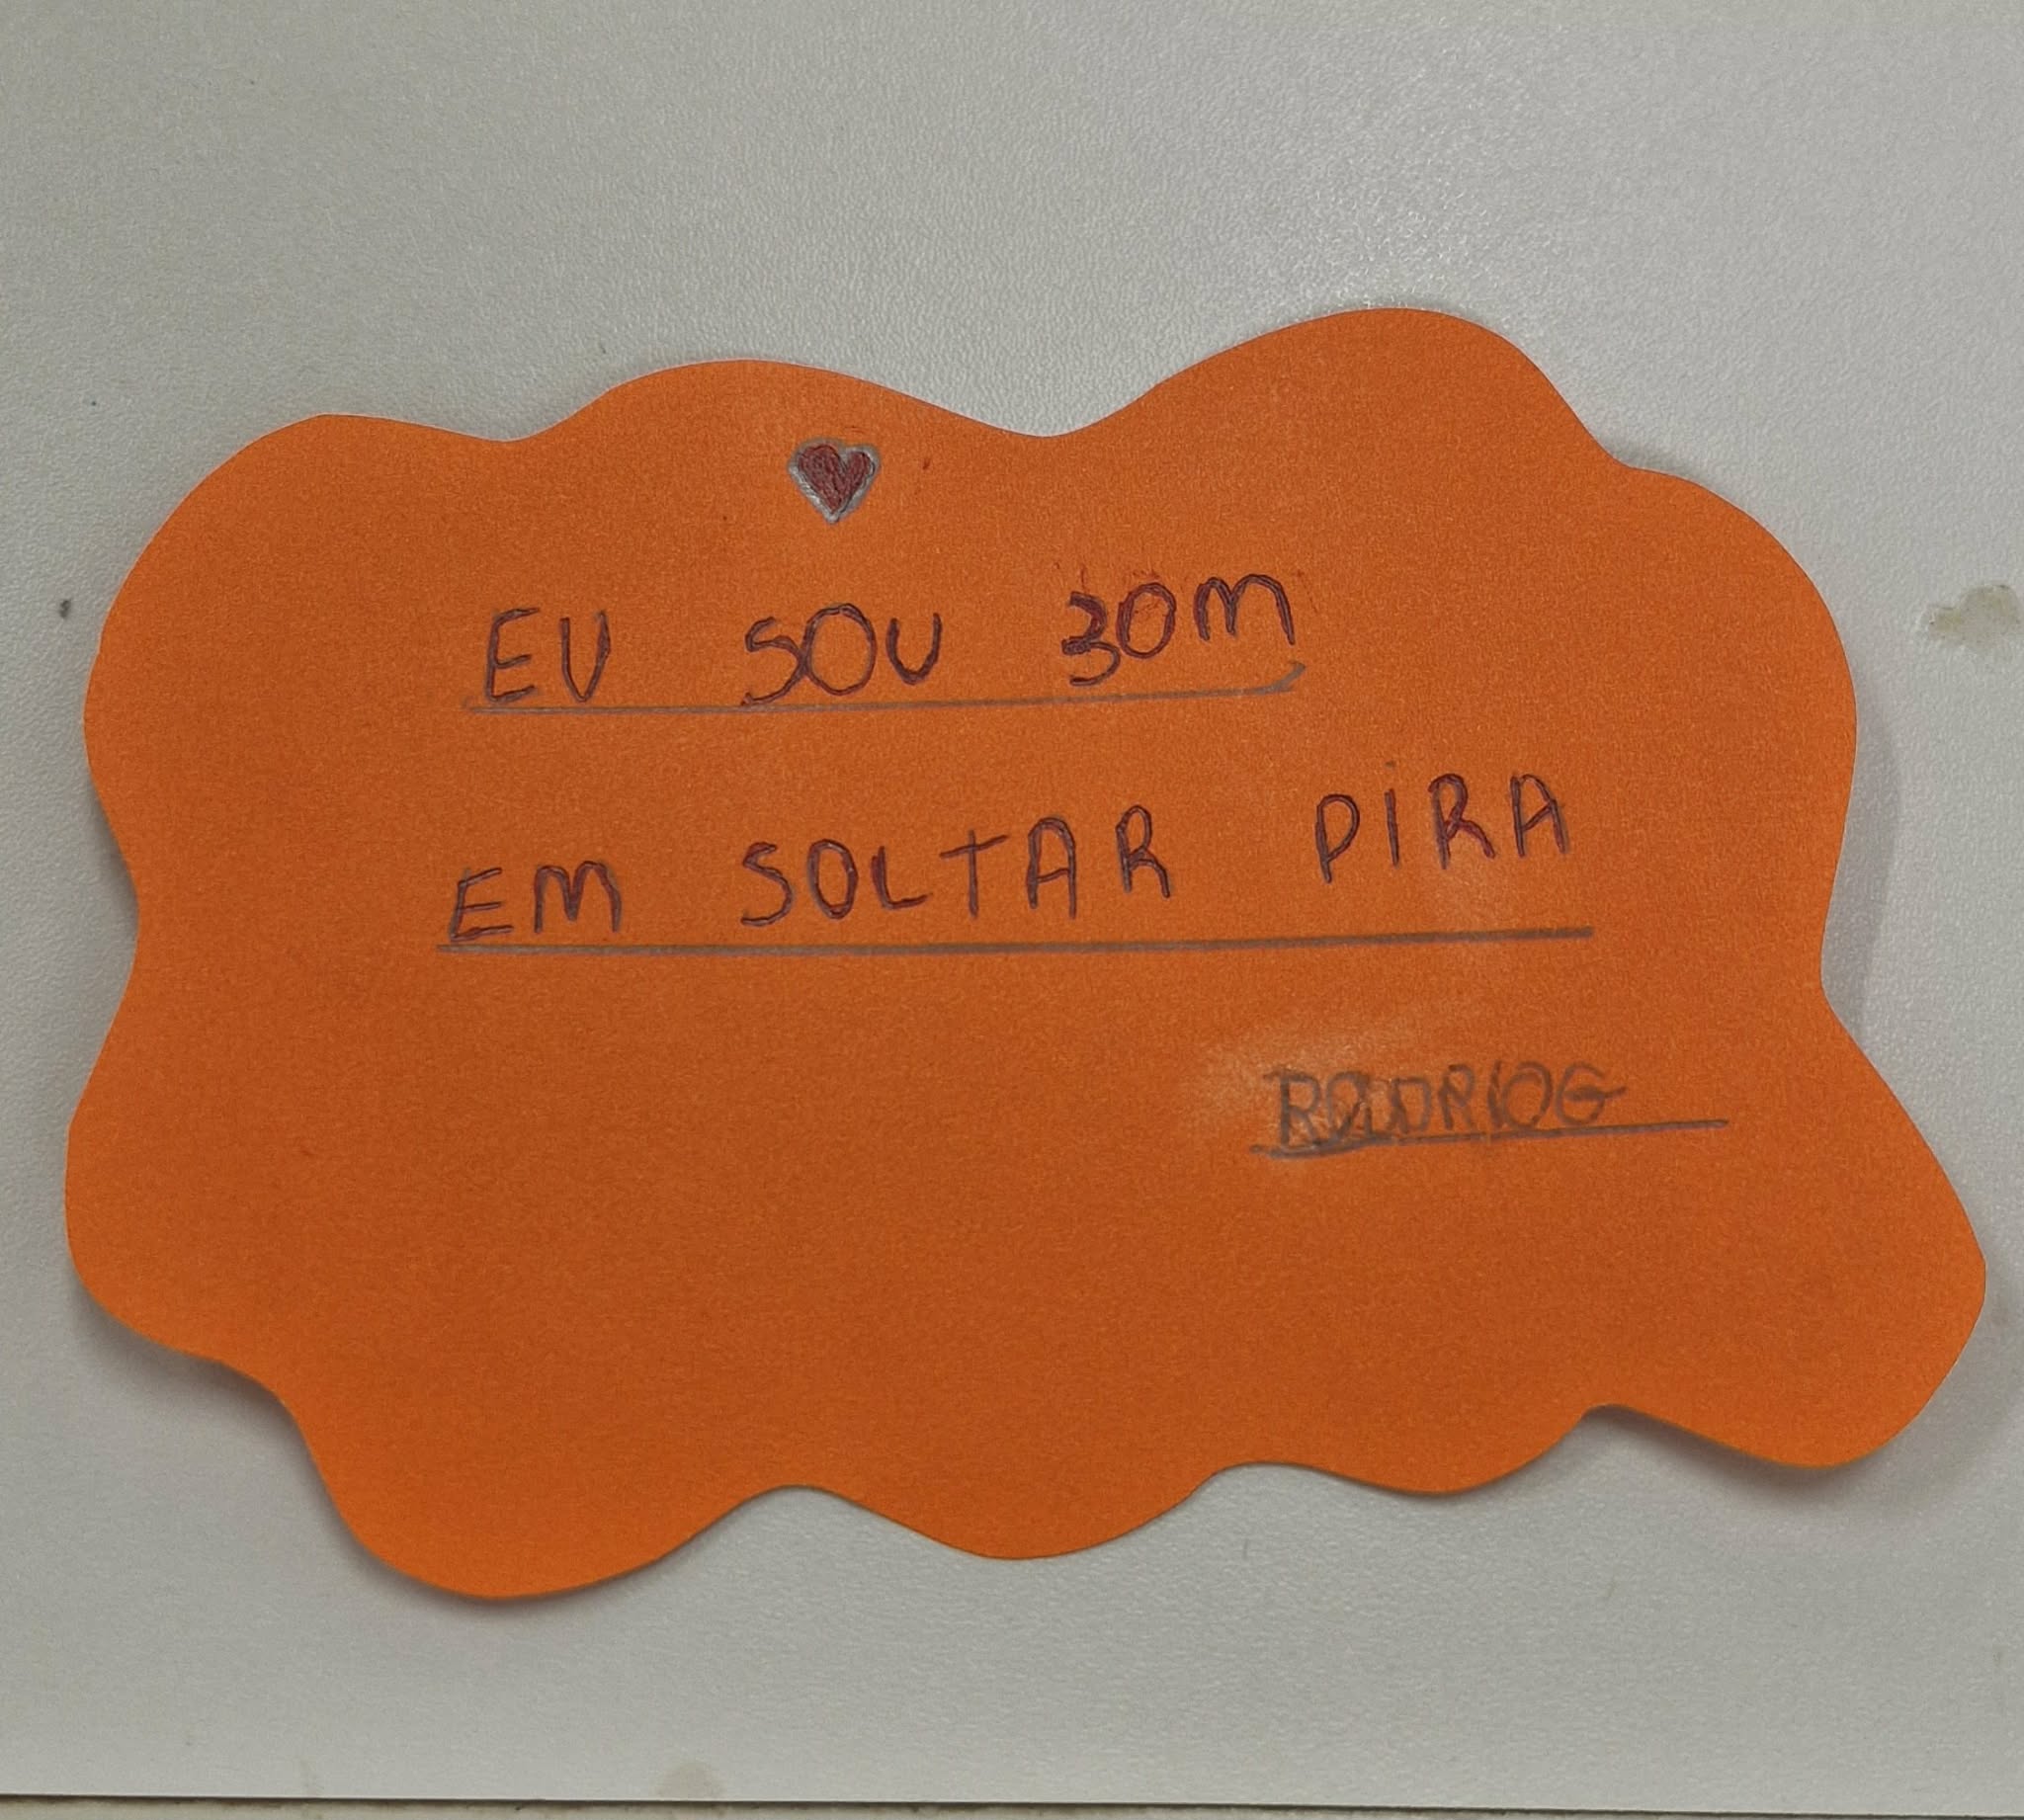 EU SOU 30M
EM SOLTAR PIRA
RODRIOG